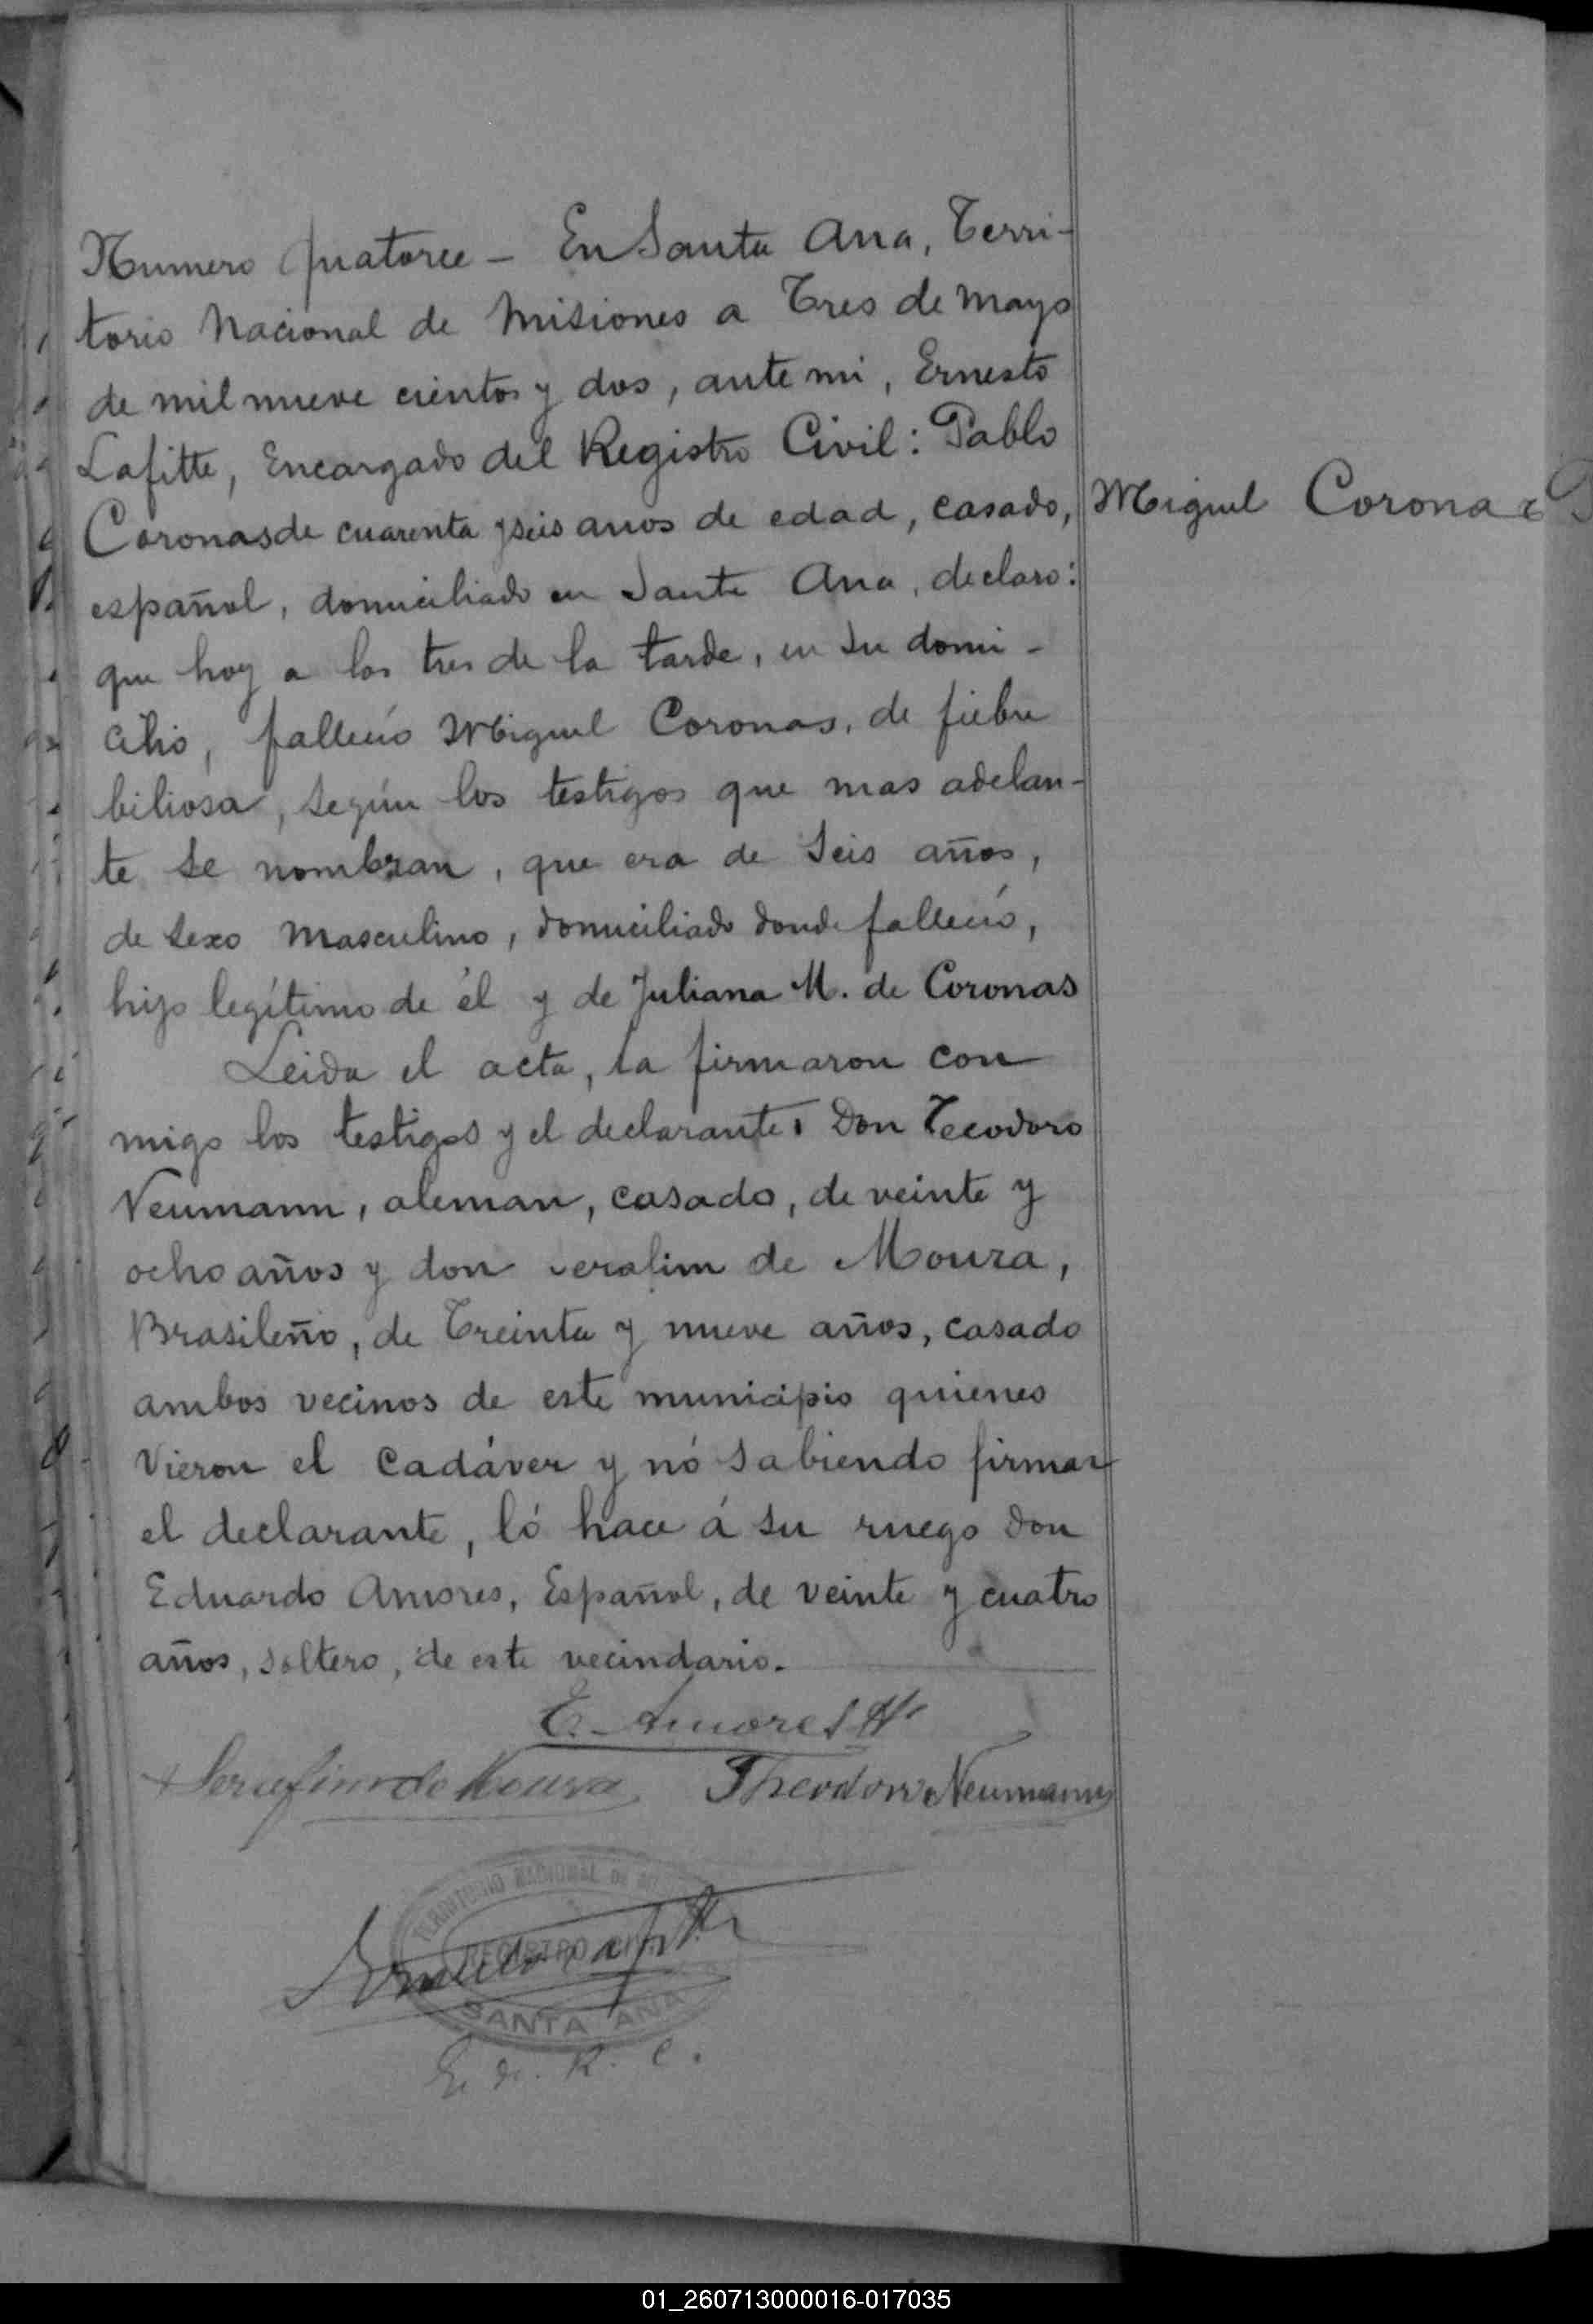 Numero quatorce - En Santa Ana, Terri-
torio Nacional de Misiones a Tres de Mayo
de mil nueve cientos y dos, ante mi, Ernesto
Lafitte, Encargado del Registro Civil: Pablo
Coronas de cuarenta y seis anos de edad, casado,
Miguel Coronas
español, domiciliado en Santa Ana, declaro:
que hoy a las tres de la tarde, en su domi-
cilio, fallecio Miguel Coronas, de fiebre
biliosa, según los testigos que mas adelan-
te se nombran, que era de seis años,
de sexo masculino, domiciliado donde falleció,
hijo legítimo de él y de Juliana M. de Coronas
Leida el acta, la firmaron con
migo los testigos y el declarante: Don Teeodoro
Neumann, aleman, casado, de veinte y
ocho años y don Serafim de Moura,
Brasileño, de Treinta y nueve años, casado
ambos vecinos de este municipio quienes
vieron el cadáver y nó sabiendo firmar
el declarante, ló hace á su ruego don
Eduardo Amores, Español, de veinte y cuatro
años, soltero, de este vecindario.
E. Amores
Serafim de Moura Theodoro Neumann
TERRITORIO NACIONAL DE
REGISTRO
Ernesto Lafitte
SANTA ANA
E. d. R. C.
01_260713000016-017035